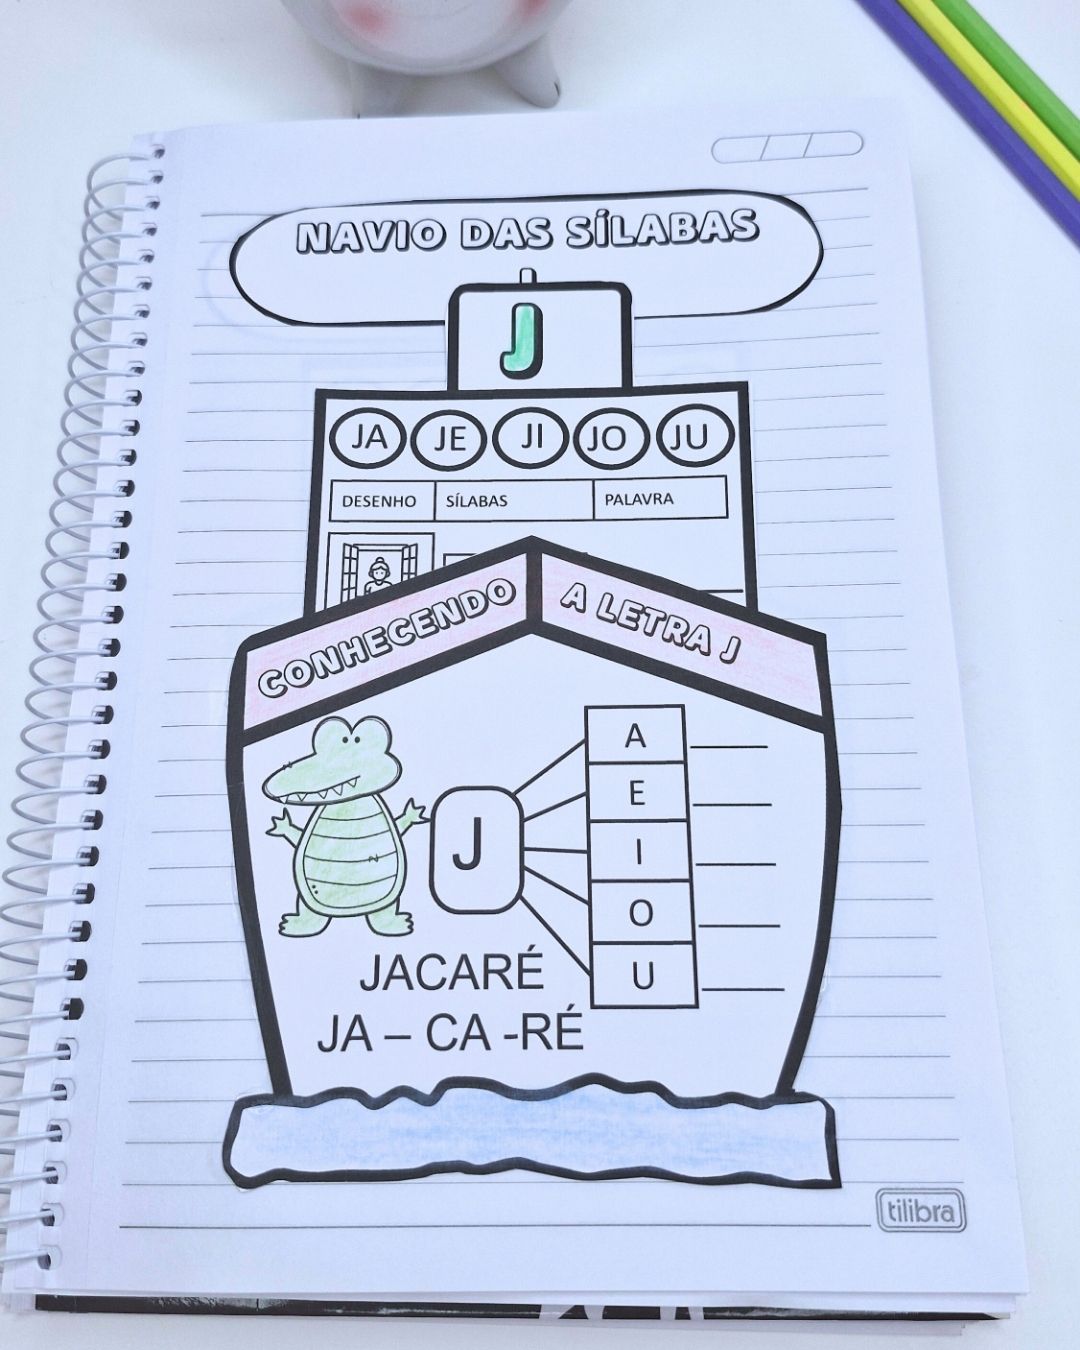 NAVIO DAS SÍLABAS
J
JA JE JI JO JU
DESENHO SÍLABAS PALAVRA
CONHECENDO A LETRA J
A
E
J
I
O
U
JACARÉ
JA – CA -RÉ
tilibra